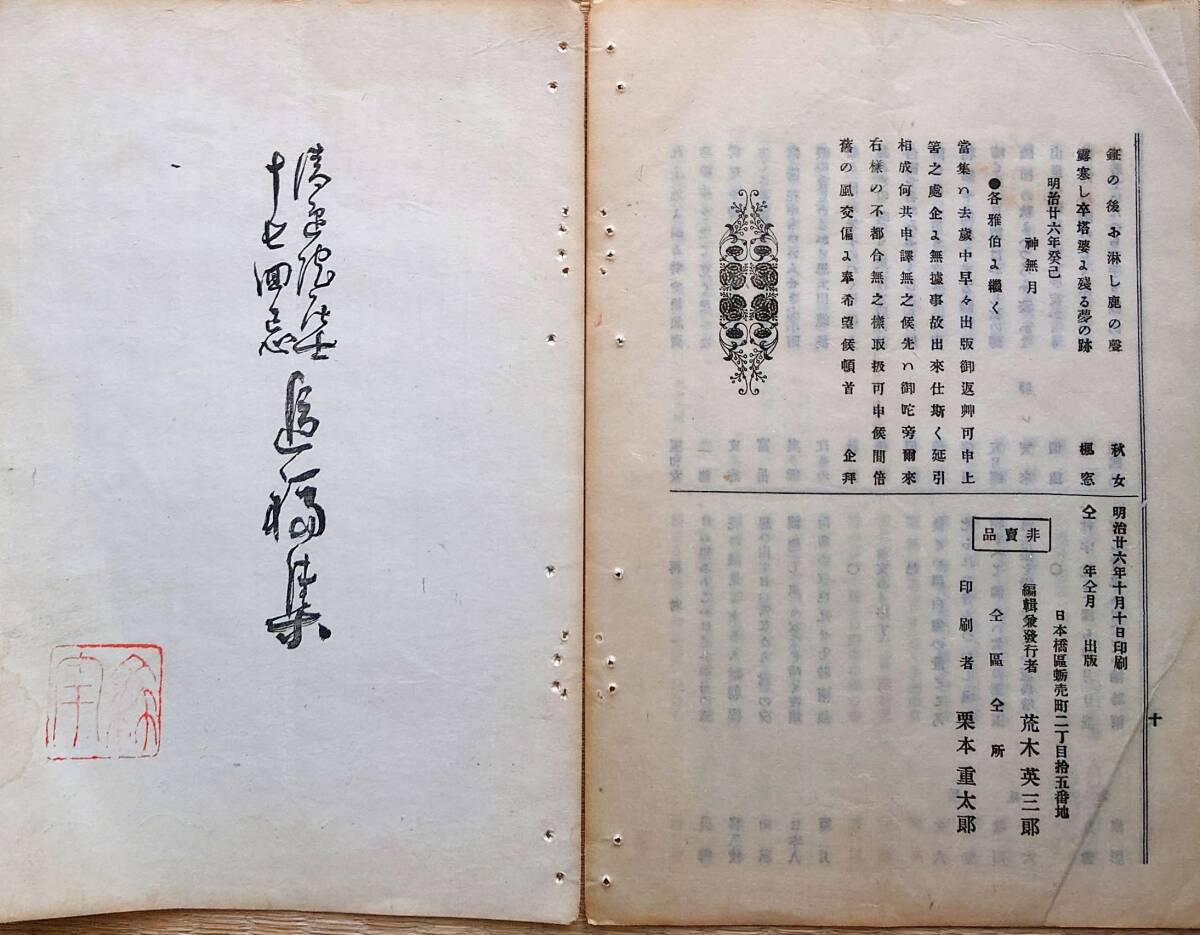 鉦の後お淋し鹿の聲 秋女
露寒し卒塔婆よ殘る夢の跡 楓窓
明治廿六年癸己
神無月
●各雅伯よ繼く
當集ハ去歲中早々出版御返艸可申上
筈之處企よ無據事故出來仕斯く延引
相成何共申譯無之候先ハ御咜旁爾來
右樣の不都合無之樣取扱可申候間倍
舊の風交偏よ奉希望候頓首 企拜
明治廿六年十月十日印刷
仝 年仝月 出版
日本橋區蛎売町二丁目拾五番地
編輯兼發行者 荒木英三郎
仝區仝所
印刷者 栗本重太郎
非賣品
十
居士
十七回忌
追福集